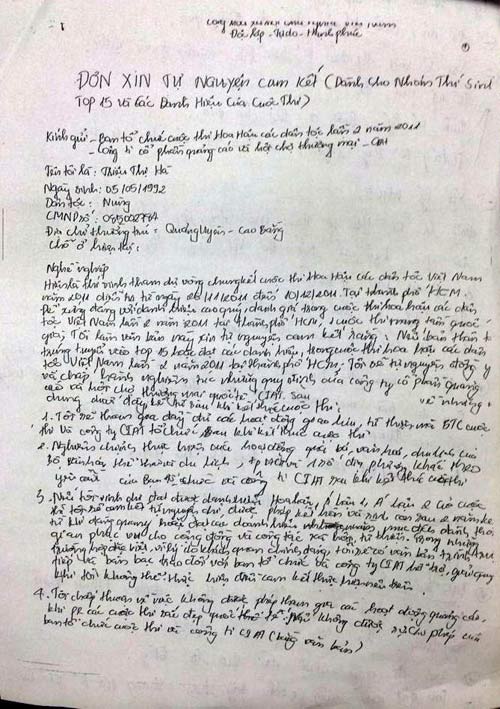 Cộng hòa xã hội chủ nghĩa Việt Nam
Độc lập - Tự do - Hạnh phúc
ĐƠN XIN TỰ NGUYỆN CAM KẾT (Dành cho Nhóm Thí Sinh
TOP 15 và các Danh Hiệu Của Cuộc Thi)
Kính gửi - Ban tổ chức cuộc thi Hoa Hậu các dân tộc lần 2 năm 2011
- Công ti cổ phần quảng cáo và hội chợ thương mại - CIAT
Tên tôi là: Triệu Thị Hà
Ngày sinh: 05/05/1992
Dân tộc: Nùng
CMND số:
Địa chỉ thường trú: Quảng Uyên - Cao Bằng
Chỗ ở hiện tại:
Nghề nghiệp
Hiện là thí sinh tham dự vòng chung kết cuộc thi Hoa Hậu các dân tộc Việt Nam
năm 2011 diễn ra từ ngày 26/11/2011 đến 10/12/2011. Tại thành phố HCM.
Để xứng đáng với danh hiệu cao quý, danh giá trong cuộc thi hoa hậu các dân
tộc Việt Nam lần 2 năm 2011 tại thành phố HCM, 1 cuộc thi mang tầm quốc
gia, Tôi làm văn bản này xin tự nguyện cam kết rằng: Nếu bản thân tôi
trúng tuyển vào top 15 hoặc đạt các danh hiệu, trong cuộc thi hoa hậu các dân
tộc Việt Nam lần 2 năm 2011 tại thành phố HCM. Tôi sẽ tự nguyện đồng ý
và chấp hành nghiêm túc những quy định của công ty cổ phần quảng
cáo và hội chợ thương mại quốc tế CIAT, sau về những
dung dưới đây kể từ sau khi kết thúc cuộc thi:
1. Tôi sẽ tham gia đầy đủ các hoạt động giao lưu, từ thiện mà BTC cuộc
thi và công ty CIAT tổ chức sau khi kết thúc cuộc thi
2. Nghiêm chỉnh thực hiện các hoạt động quảng bá, văn hóa, du lịch của
Bộ văn hóa thể thao và du lịch, và 1 số địa phương khác theo
yêu cầu của Ban tổ chức và công ti CIAT sau khi kết thúc cuộc thi
3. Nếu tôi vinh dự đạt được danh hiệu Hoa hậu, Á hậu 1, Á hậu 2 của cuộc
thi tôi sẽ cam kết tự nguyện chỉ được phép kết hôn và sinh con sau 2 năm kể
từ khi đăng quang hoặc đạt các danh hiệu nhằm mục đích dành thời
gian phục vụ cho cộng đồng và công tác xã hội, từ thiện. Trong những
trường hợp đặc biệt, vì lý do khách quan chính đáng, tôi sẽ có văn bản trình
tiếp và bàn bạc trao đổi với ban tổ chức và công ty CIAT
khi tôi không thể thực hiện được cam kết
4. Tôi chấp thuận về việc không được phép tham gia các hoạt động quảng cáo,
khi các cuộc thi sắc đẹp quốc tế nếu không được sự cho phép của
ban tổ chức cuộc thi và công ti CIAT (bằng văn bản)